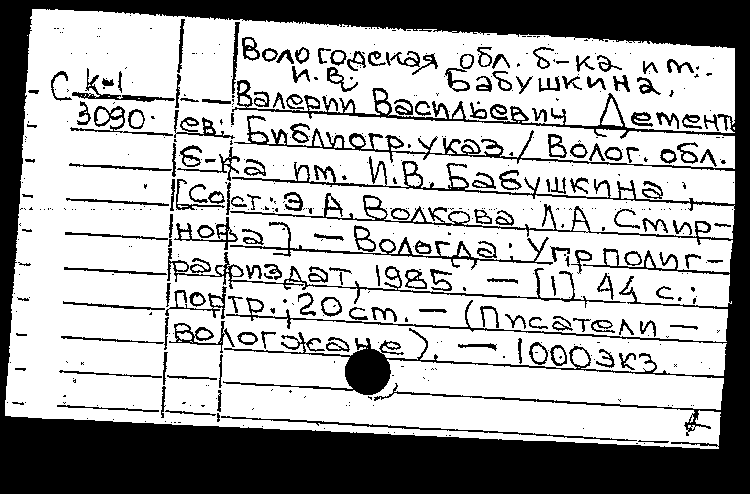 Вологодская обл. б-ка им.
И.В. Бабушкина.
С К-1
3090.
Валерий Васильевич Дементь
ев: Библиогр. указ. / Волог. обл.
б-ка им. И.В. Бабушкина ;
[Сост.: Э.А. Волкова, Л.А. Смир-
нова]. — Вологда : Упрполиг-
рафиздат, 1985. — [1], 44 с. ;
портр. ; 20 ст. — (Писатели —
вологжане). — 1000 экз.